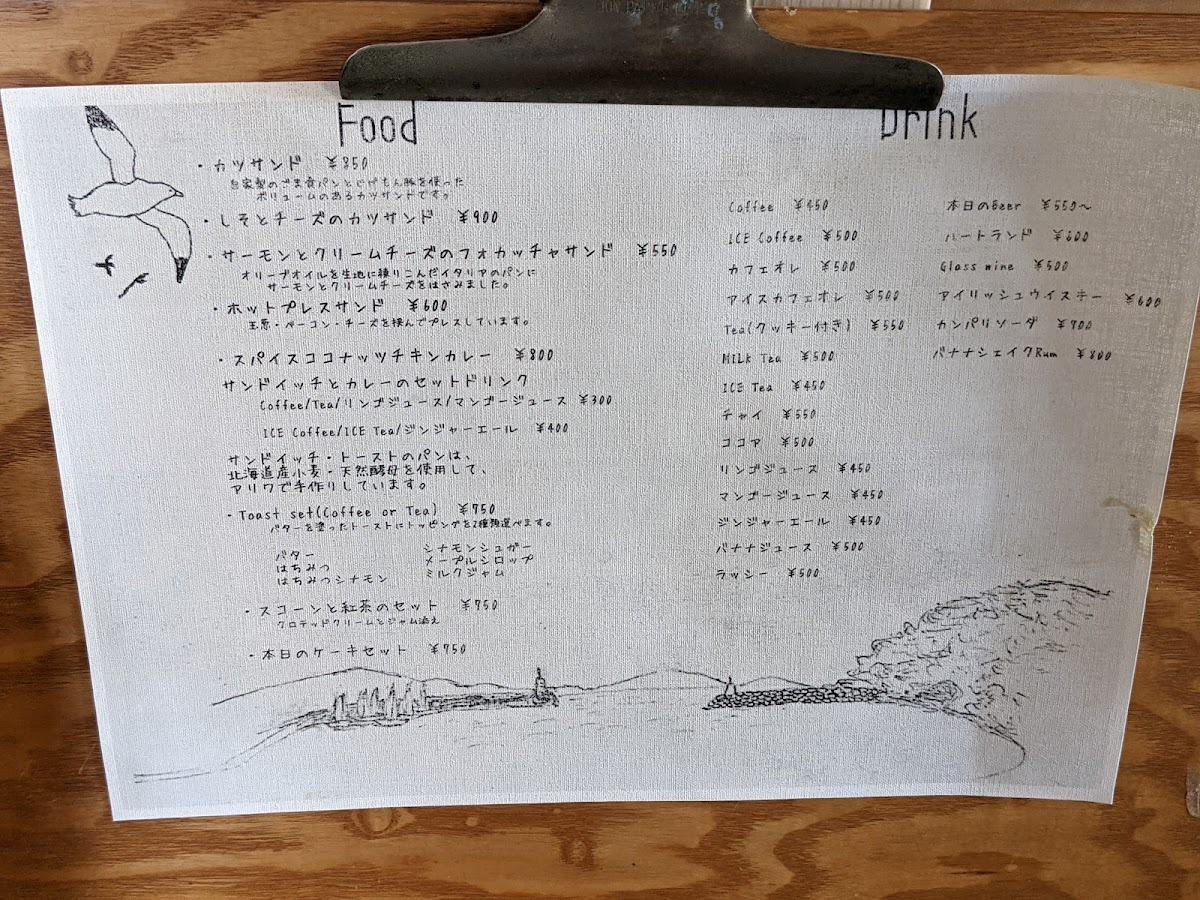 Food
・カツサンド ¥850
自家製のごま食パンとじげもん豚を使った
ボリュームのあるカツサンドです。
・しそとチーズのカツサンド ¥900
・サーモンとクリームチーズのフォカッチャサンド ¥550
オリーブオイルを生地に練りこんだイタリアのパンに
サーモンとクリームチーズをはさみました。
・ホットプレスサンド ¥600
玉ねぎ・ベーコン・チーズを挟んでプレスしています。
・スパイスココナッツチキンカレー ¥800
サンドイッチとカレーのセットドリンク
Coffee/Tea/リンゴジュース/マンゴージュース ¥300
ICE Coffee/ICE Tea/ジンジャーエール ¥400
サンドイッチ・トーストのパンは、
北海道産小麦・天然酵母を使用して、
アリワで手作りしています。
・Toast set(Coffee or Tea) ¥750
バターを塗ったトーストにトッピングを2種類選べます。
バター
はちみつ
はちみつシナモン
シナモンシュガー
メープルシロップ
ミルクジャム
・スコーンと紅茶のセット ¥750
クロテッドクリームとジャム添え
・本日のケーキセット ¥750
Drink
Coffee ¥450
ICE Coffee ¥500
カフェオレ ¥500
アイスカフェオレ ¥500
Tea(クッキー付き) ¥550
MILK Tea ¥500
ICE Tea ¥450
チャイ ¥550
ココア ¥500
リンゴジュース ¥450
マンゴージュース ¥450
ジンジャーエール ¥450
バナナジュース ¥500
ラッシー ¥500
本日のBeer ¥550～
ハートランド ¥600
Glass wine ¥500
アイリッシュウイスキー ¥600
カンパリソーダ ¥700
バナナシェイクRum ¥800